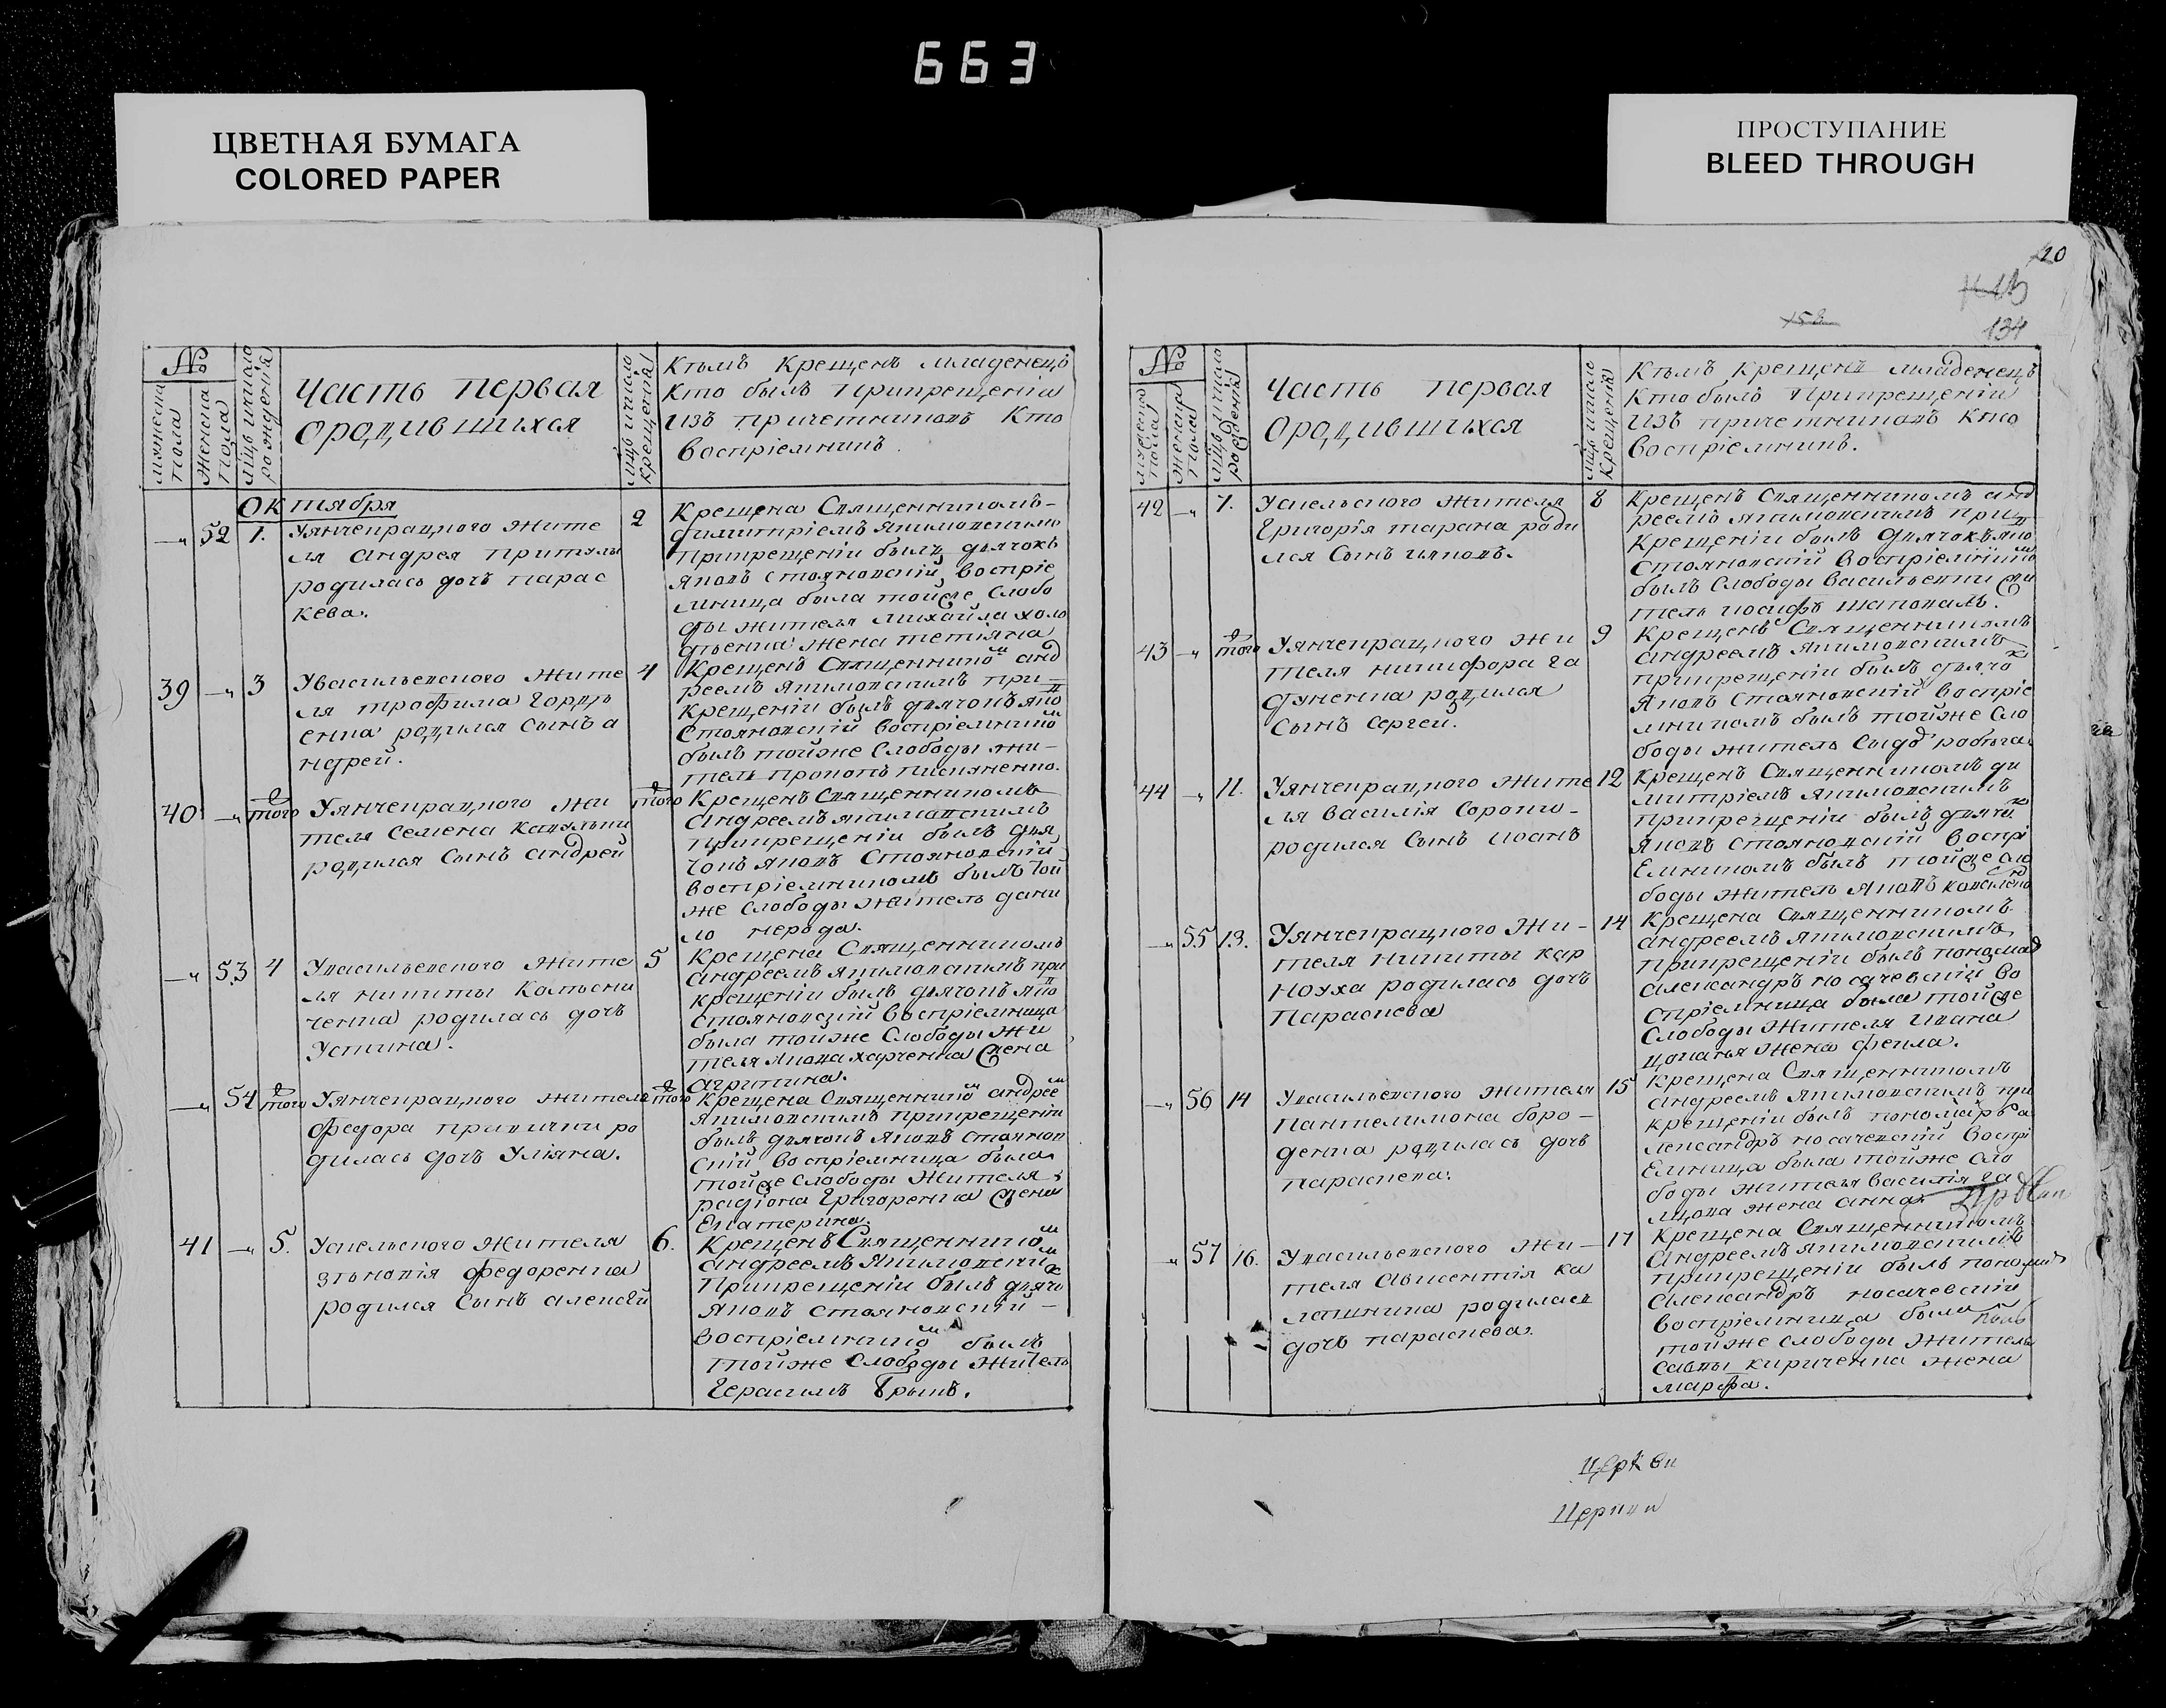 663
ЦВЕТНАЯ БУМАГА
COLORED PAPER
ПРОСТУПАНИЕ
BLEED THROUGH
№
мужеска пола
женска пола
мцъ ичисло рожденія
Часть первая
ородившихся
мцъ ичисло крещенія
Кѣмъ Крещенъ младенецъ
Кто былъ Прикрещеніи
изъ причетниковъ Кто
воспріемникъ.
Октября
—„ 52 1. Уянчекрацкого жите
ля Андрея
родилась дочъ парас
кева.
2 Крещена Священникомъ
димитріемъ Якимовскимъ
Прикрещеніи былъ дьячокъ
Яковъ Стояновскій воспріе
мница была тойже Слобо
ды жителя михайла холо
жена тетіяна
39 —„ 3 Увасильевского жите
ля трофима гордѣ
енка родился сынъ а
ндрей.
4 Крещенъ Священнико анд
реемъ Якимовскимъ при
крещеніи былъ дьячокъ яко
Стояновскій воспріемнико
былъ тойже Слободы жи
тель Прокопъ писяненко.
40 —„ того Уянчекрацкого жи
теля Семена
родился сынъ андрей
того Крещенъ Священникомъ
Андреемъ якимовскимъ
прикрещеніи былъ дья
чокъ яковъ Стояновскій
воспріемникомъ былъ той
же слободы житель дани
ло нерода.
—„ 53 4 Увасильевского жите
ля никиты
ченка родилась дочъ
Устина.
5 Крещена Священникомъ
андреемъ якимовскимъ при
крещеніи былъ дьячокъ яко
стояновскій воспріемница
была тойже Слободы жи
теля якова харченка жена
агрипина.
—„ 54 того Уянчекрацкого жителя
федора ро
дилась дочъ Уліяна.
того Крещена Священнико андрее
якимовскимъ прикрещеніи
былъ дьячокъ яковъ стоянов
скій воспріемница была
тойже слободы жителя
радіона Григоренка жена
Екатерина.
41 —„ 5. Успельского жителя
зѣновія федоренка
родился Сынъ алексѣй
6. Крещенъ Священнико
андреемъ якимовски
Прикрещеніи былъ дьячо
яковъ стояновскій
воспріемнико былъ
тойже слободы житель
Герасимъ
20
134
№
мужеска пола
женска пола
мцъ ичисло рожденія
Часть первая
ородившихся
мцъ ичисло Крещенія
Кѣмъ крещенъ младенецъ
Кто былъ Прикрещеніи
изъ причетниковъ Кто
воспріемникъ.
42 —„ 7. Успельского жителя
Григорія тарана роди
лся сынъ
8 Крещенъ Священникомъ анд
реемъ якимовскимъ при
крещеніи былъ дьячокъ яко
Стояновскій воспріемнико
былъ слободы васильевки жи
тель иосифъ шаповалъ.
43 —„ того Уянчекрацкого жи
теля никифора га
дуненка родился
сынъ Сергей.
9 Крещенъ Священникомъ
андреемъ якимовскимъ
прикрещеніи былъ дьячо
яковъ стояновскій воспріе
мникомъ былъ тойже сло
боды житель
44 —„ 11. Уянчекрацкого жите
ля василія
родился сынъ иоанъ
12 Крещенъ Священникомъ ди
митріемъ якимовскимъ
прикрещеніи былъ дьячо
яковъ стояновскій воспрі
емникомъ былъ тойже сло
боды житель яковъ
—„ 55 13. Уянчекрацкого жи
теля никиты кар
ноуха родилась дочъ
Параскева
14 Крещена Священникомъ
андреемъ якимовскимъ
прикрещеніи былъ
александръ носачевскій во
спріемница была тойже
слободы жителя ивана
жена фекла.
—„ 56 14 Увасильевского жителя
Пантелимона боро
денка родилась дочъ
параскева.
15 Крещена Священникомъ
андреемъ якимовскимъ при
крещеніи былъ пономаръ а
лександръ носачевскій воспрі
емница была тойже сло
боды жителя василія га
жена анна.
—„ 57 16. Увасильевского жи
теля Авксентія ка
лашника родилась
дочъ параскева.
17 Крещена Священникомъ
андреемъ якимовскимъ
прикрещеніи былъ
александръ носачевскій
воспріемница была
тойже слободы жителя
саввы кириченка жена
марфа.
Церкви
Церкви